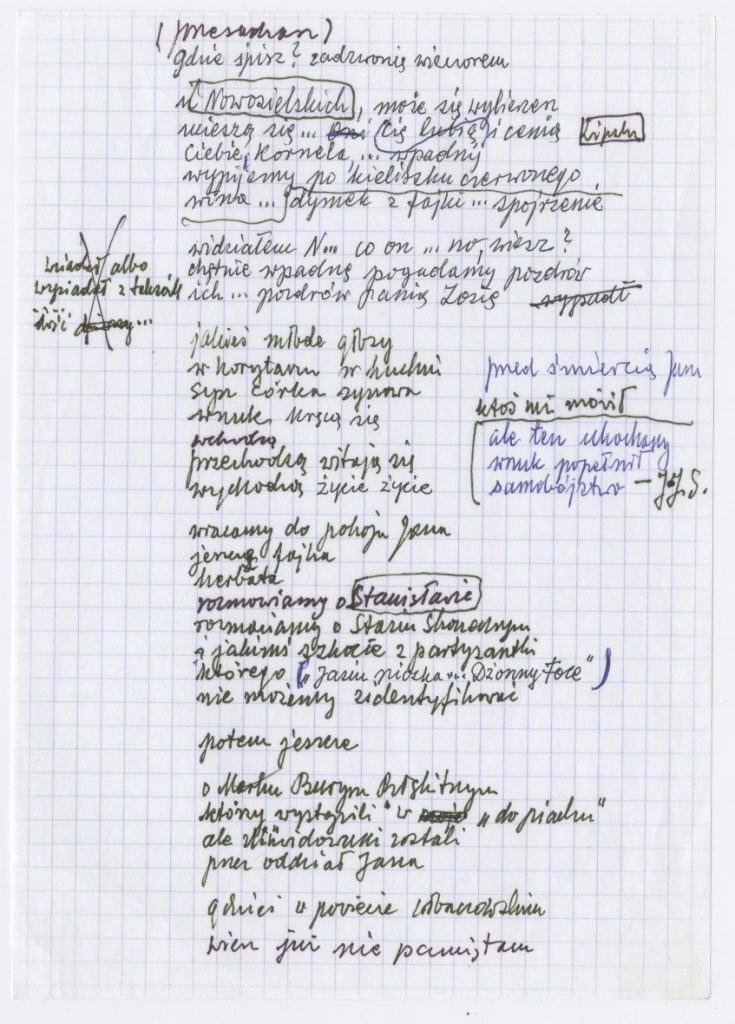 gdzie śpisz? zadzwonię wieczorem
u Nowosielskich, może się wybierzesz
cieszą się... oni cię lubią i cenią
ciebie, Kornela,... wpadnij
wypijemy po kieliszku czerwonego
wina... dymek z fajki... spojrzenie
widziałem N... co on... no, wiesz?
chętnie wpadnę pogadamy pozdrów
ich... pozdrów panią Zosię wypadł
wsiadał albo
wysiadał z taksówki
jakieś młode głosy
w korytarzu w kuchni
syn córka synowa
wnuk kręcą się
wchodzą
przechodzą witają się
wychodzą życie życie
przed śmiercią Jana
ktoś mi mówił
ale ten ukochany
wnuk popełnił
samobójstwo – J.J.S.
wracamy do pokoju Jana
jeszcze fajka
herbata
rozmawiamy o Stanisławie
rozmawiamy o Stasiu
i jakimś szkocie z partyzantki
którego („Jasiu pieczka... Dżonny Foce”)
nie możemy zidentyfikować
potem jeszcze
o Marku Burym
który wystąpili w „do piachu”
ale zlikwidowani zostali
przez oddział Jana
gdzieś w powiecie
wiem już nie pamiętam